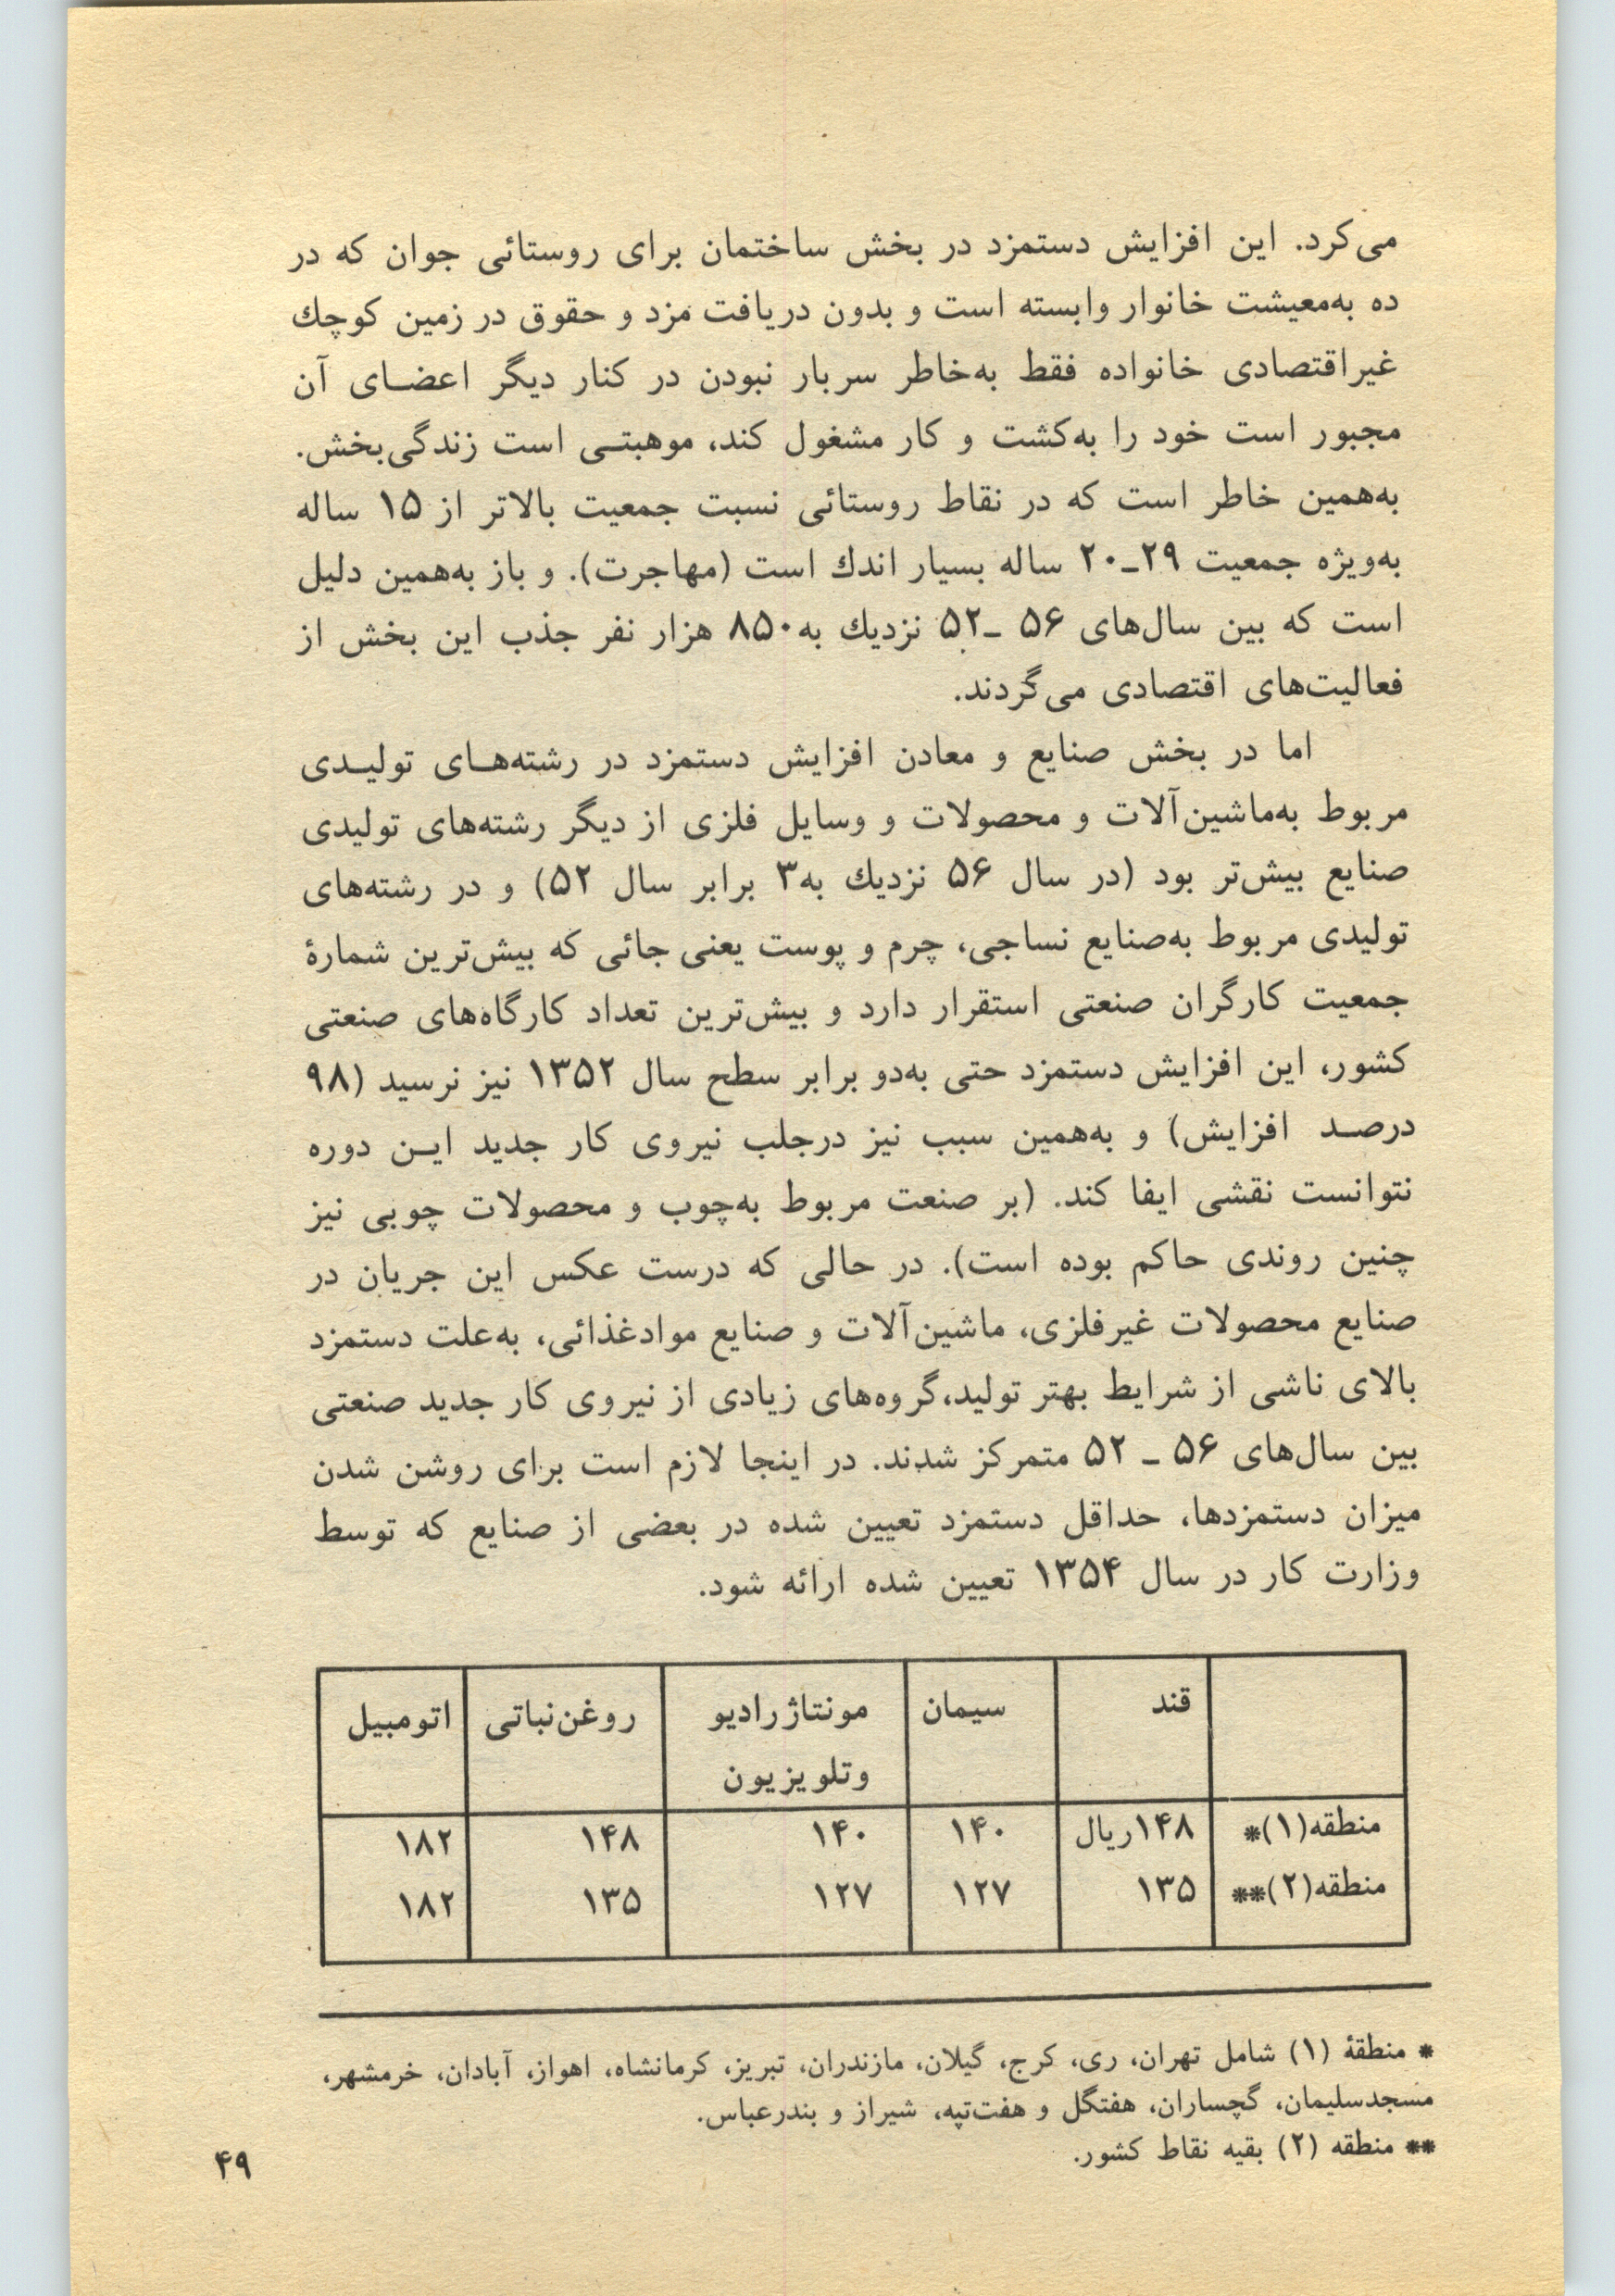 می‌کرد. این افزایش دستمزد در بخش ساختمان برای روستائی جوان که در
ده به‌معیشت خانوار وابسته است و بدون دریافت مزد و حقوق در زمین کوچك
غیراقتصادی خانواده فقط به‌خاطر سربار نبودن در کنار دیگر اعضای آن
مجبور است خود را به‌کشت و کار مشغول کند، موهبتی است زندگی‌بخش.
به‌همین خاطر است که در نقاط روستائی نسبت جمعیت بالاتر از ۱۵ ساله
به‌ویژه جمعیت ۲۹ـ۲۰ ساله بسیار اندك است (مهاجرت). و باز به‌همین دلیل
است که بین سال‌های ۵۶ ـ۵۲ نزدیك به۸۵۰ هزار نفر جذب این بخش از
فعالیت‌های اقتصادی می‌گردند.
اما در بخش صنایع و معادن افزایش دستمزد در رشته‌های تولیدی
مربوط به‌ماشین‌آلات و محصولات و وسایل فلزی از دیگر رشته‌های تولیدی
صنایع بیش‌تر بود (در سال ۵۶ نزدیك به۳ برابر سال ۵۲) و در رشته‌های
تولیدی مربوط به‌صنایع نساجی، چرم و پوست یعنی جائی که بیش‌ترین شمارهٔ
جمعیت کارگران صنعتی استقرار دارد و بیش‌ترین تعداد کارگاه‌های صنعتی
کشور، این افزایش دستمزد حتی به‌دو برابر سطح سال ۱۳۵۲ نیز نرسید (۹۸
درصد افزایش) و به‌همین سبب نیز درجلب نیروی کار جدید این دوره
نتوانست نقشی ایفا کند. (بر صنعت مربوط به‌چوب و محصولات چوبی نیز
چنین روندی حاکم بوده است). در حالی که درست عکس این جریان در
صنایع محصولات غیرفلزی، ماشین‌آلات و صنایع موادغذائی، به‌علت دستمزد
بالای ناشی از شرایط بهتر تولید،گروه‌های زیادی از نیروی کار جدید صنعتی
بین سال‌های ۵۶ ـ ۵۲ متمرکز شدند. در اینجا لازم است برای روشن شدن
میزان دستمزدها، حداقل دستمزد تعیین شده در بعضی از صنایع که توسط
وزارت کار در سال ۱۳۵۴ تعیین شده ارائه شود.
قند سیمان مونتاژرادیو روغن‌نباتی اتومبیل
وتلویزیون
منطقه(۱)* ۱۴۸ریال ۱۴۰ ۱۴۰ ۱۴۸ ۱۸۲
منطقه(۲)** ۱۳۵ ۱۲۷ ۱۲۷ ۱۳۵ ۱۸۲
* منطقهٔ (۱) شامل تهران، ری، کرج، گیلان، مازندران، تبریز، کرمانشاه، اهواز، آبادان، خرمشهر،
مسجدسلیمان، گچساران، هفتگل و هفت‌تپه، شیراز و بندرعباس.
** منطقه (۲) بقیه نقاط کشور.
۴۹